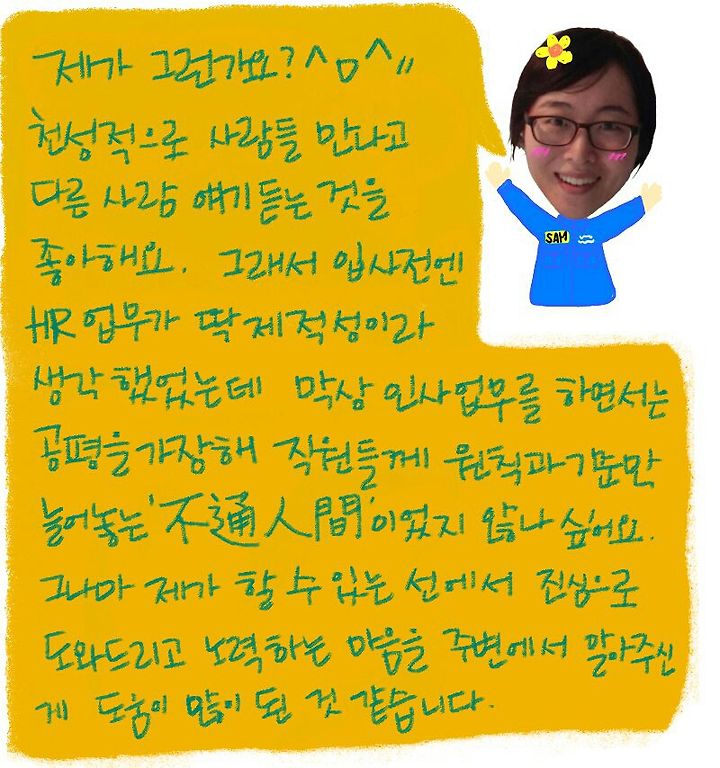 제가 그런가요? ^ㅁ^"
천성적으로 사람들 만나고
다른 사람 얘기 듣는 것을
좋아해요. 그래서 입사전엔
HR 업무가 딱 제 적성이라
생각 했었는데 막상 인사업무를 하면서는
공평을 가장해 직원들께 원칙과 기준만
늘어놓는 '不通人間'이었지 않나 싶어요.
그나마 제가 할 수 있는 선에서 진심으로
도와드리고 노력하는 마음을 주변에서 알아주신
게 도움이 많이 된 것 같습니다.
SAM